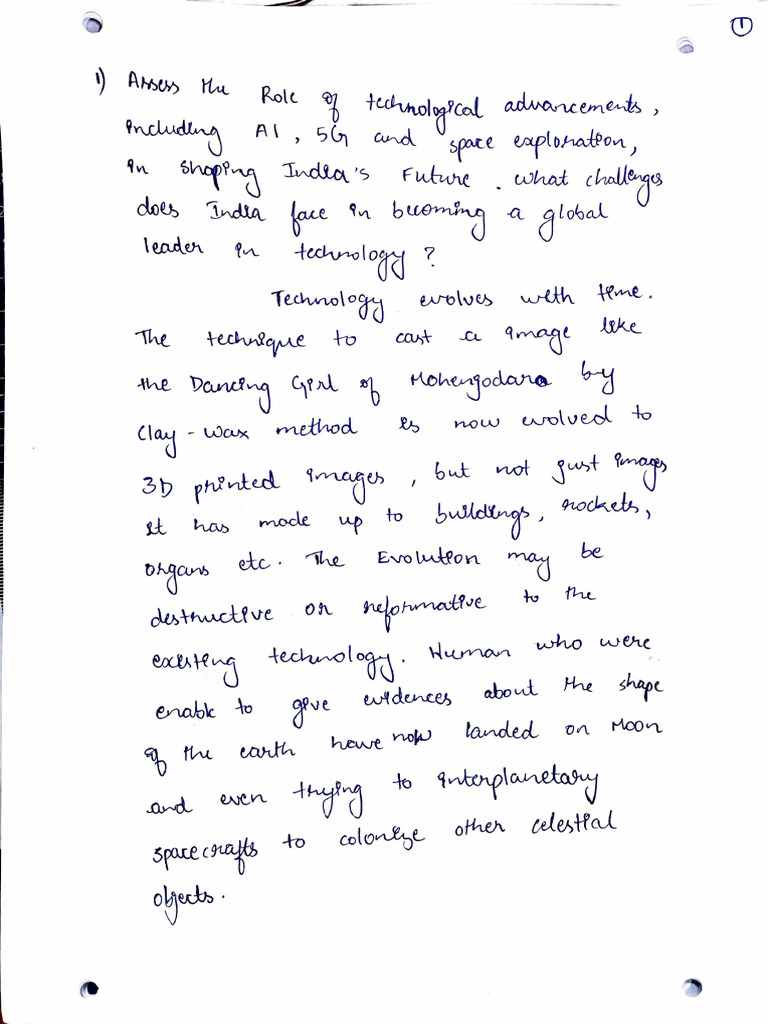 1
1) Assess the Role of technological advancements,
including AI, 5G and space exploration,
in shaping India's Future. what challenges
does India face in becoming a global
leader in technology?
Technology evolves with time.
The technique to cast a image like
the Dancing Girl of Mohengodara by
Clay-wax method is now evolved to
3D printed images, but not just images
it has made up to buildings, rockets,
organs etc. The Evolution may be
destructive or reformative to the
existing technology. Human who were
enable to give evidences about the shape
of the earth have now landed on Moon
and even trying to interplanetary
spacecrafts to colonize other celestial
objects.